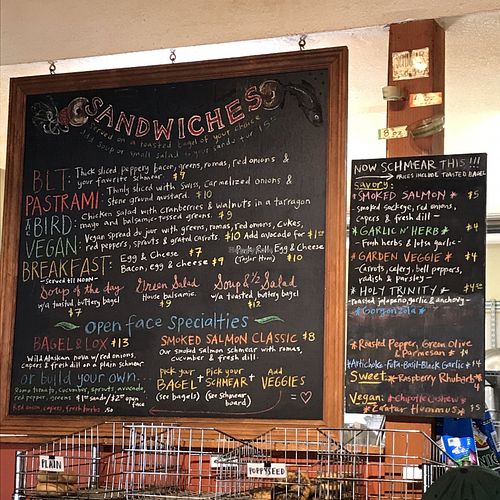 SANDWICHES
served on a toasted bagel of your choice
BLT: Thick sliced peppery bacon, greens, romas, red onions &
your favorite schmear. $9
PASTRAMI: Thinly sliced with Swiss, carmelized onions &
stone ground mustard. $10
A BIRD: Chicken salad with cranberries & walnuts in a tarragon
mayo and balsamic-tossed greens. $9
VEGAN: Vegan spread du jour with greens, romas, red onions, cukes,
red peppers, sprouts & grated carrots. $10 Add avocado for $1
BREAKFAST: Egg & Cheese $7
Bacon, egg & cheese $9
Egg & Cheese
(Taylor Ham) $10
-served till noon-
Soup of the day
w/a toasted buttery bagel
$7
Green Salad
House balsamic.
$9
Soup & 1/2 Salad
w/a toasted buttery bagel
$12
Open face Specialties
BAGEL & LOX $13
Wild Alaskan nova w/red onions,
capers & fresh dill on a plain schmear
SMOKED SALMON CLASSIC $8
Our smoked salmon schmear with romas,
cucumber & fresh dill.
or build your own...
Roma tomato, cucumber, sprouts, avocado,
red pepper, greens
open
face
Red onion, capers, fresh herbs
pick your
BAGEL
(see bagels)
+
Pick your
SCHMEAR
(see schmear
board)
+
Add
VEGGIES
=
NOW SCHMEAR THIS !!!
PRICES INCLUDE TOASTED BAGEL
Savory:
*SMOKED SALMON* $5
smoked sockeye, red onions,
capers & fresh dill
*GARLIC N' HERB* $4
- Fresh herbs & lotsa garlic -
*GARDEN VEGGIE* $4
-Carrots, celery, bell peppers,
radish & parsley-
*HOLY TRINITY*
-Toasted jalapeño, garlic & anchovy-
*Gorgonzola*
*Roasted Pepper, Green Olive
& Parmesan* $4
*Artichoke-Feta-Basil-Black Garlic* $4
Sweet: *Raspberry Rhubarb* $4
Vegan: *Chipotle Cashew*
*Zaatar Hummus* $5
PLAIN
POPPYSEED